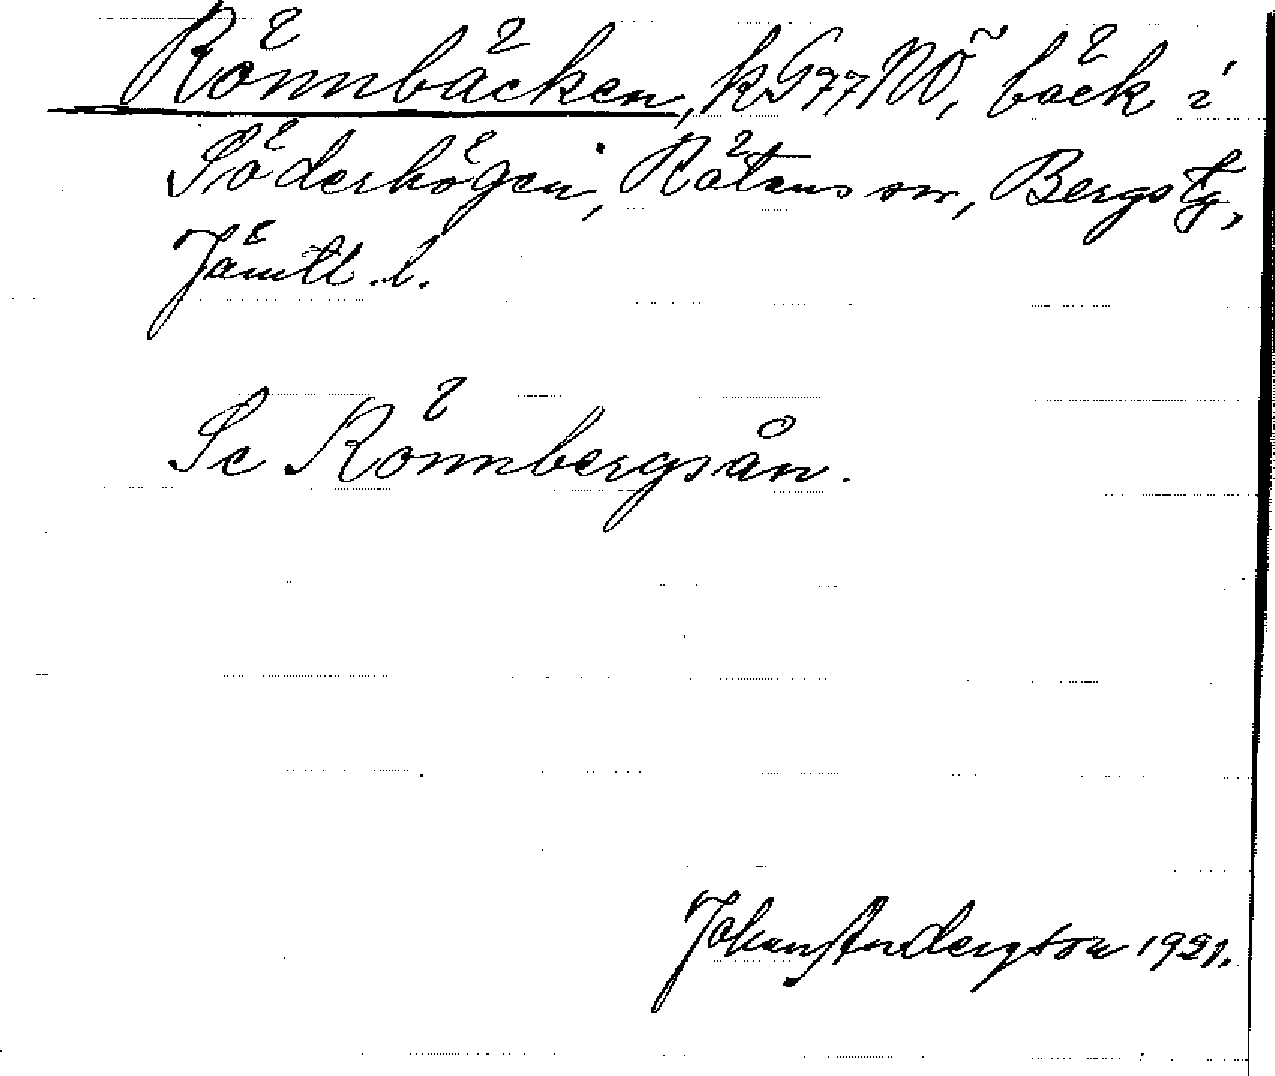 Rönnbäcken, kG77NÖ, bäck i
Söderhögen, Rätans sn, Bergs tg,
Jämtl. l.
Se Rönnbergsån.
Johan Andersson 1921.